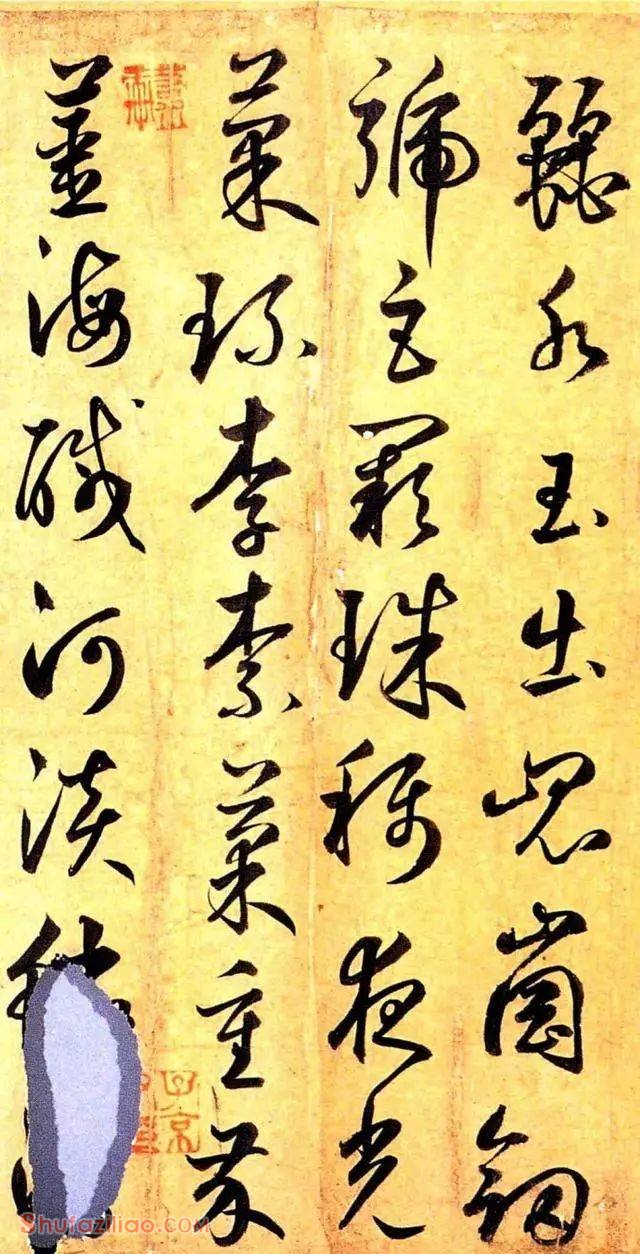 麗水玉出崐崗劒
號巨闕珠稱夜光
菓珍李柰菜重芥
薑海醎河淡
Shufaziliao.com